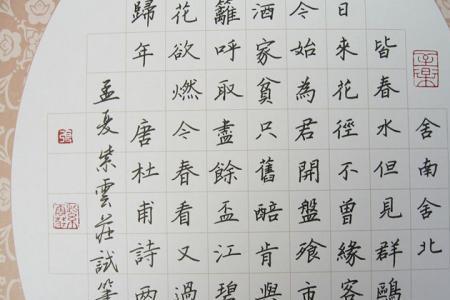 舍南舍北
皆春水但見群鷗
日來花徑不曾緣客
今始為君開盤飧市
酒家貧只舊醅肯與
籬呼取盡餘盃江碧
花欲燃今春看又過
歸年 唐杜甫詩兩
孟夏紫雲莊試筆